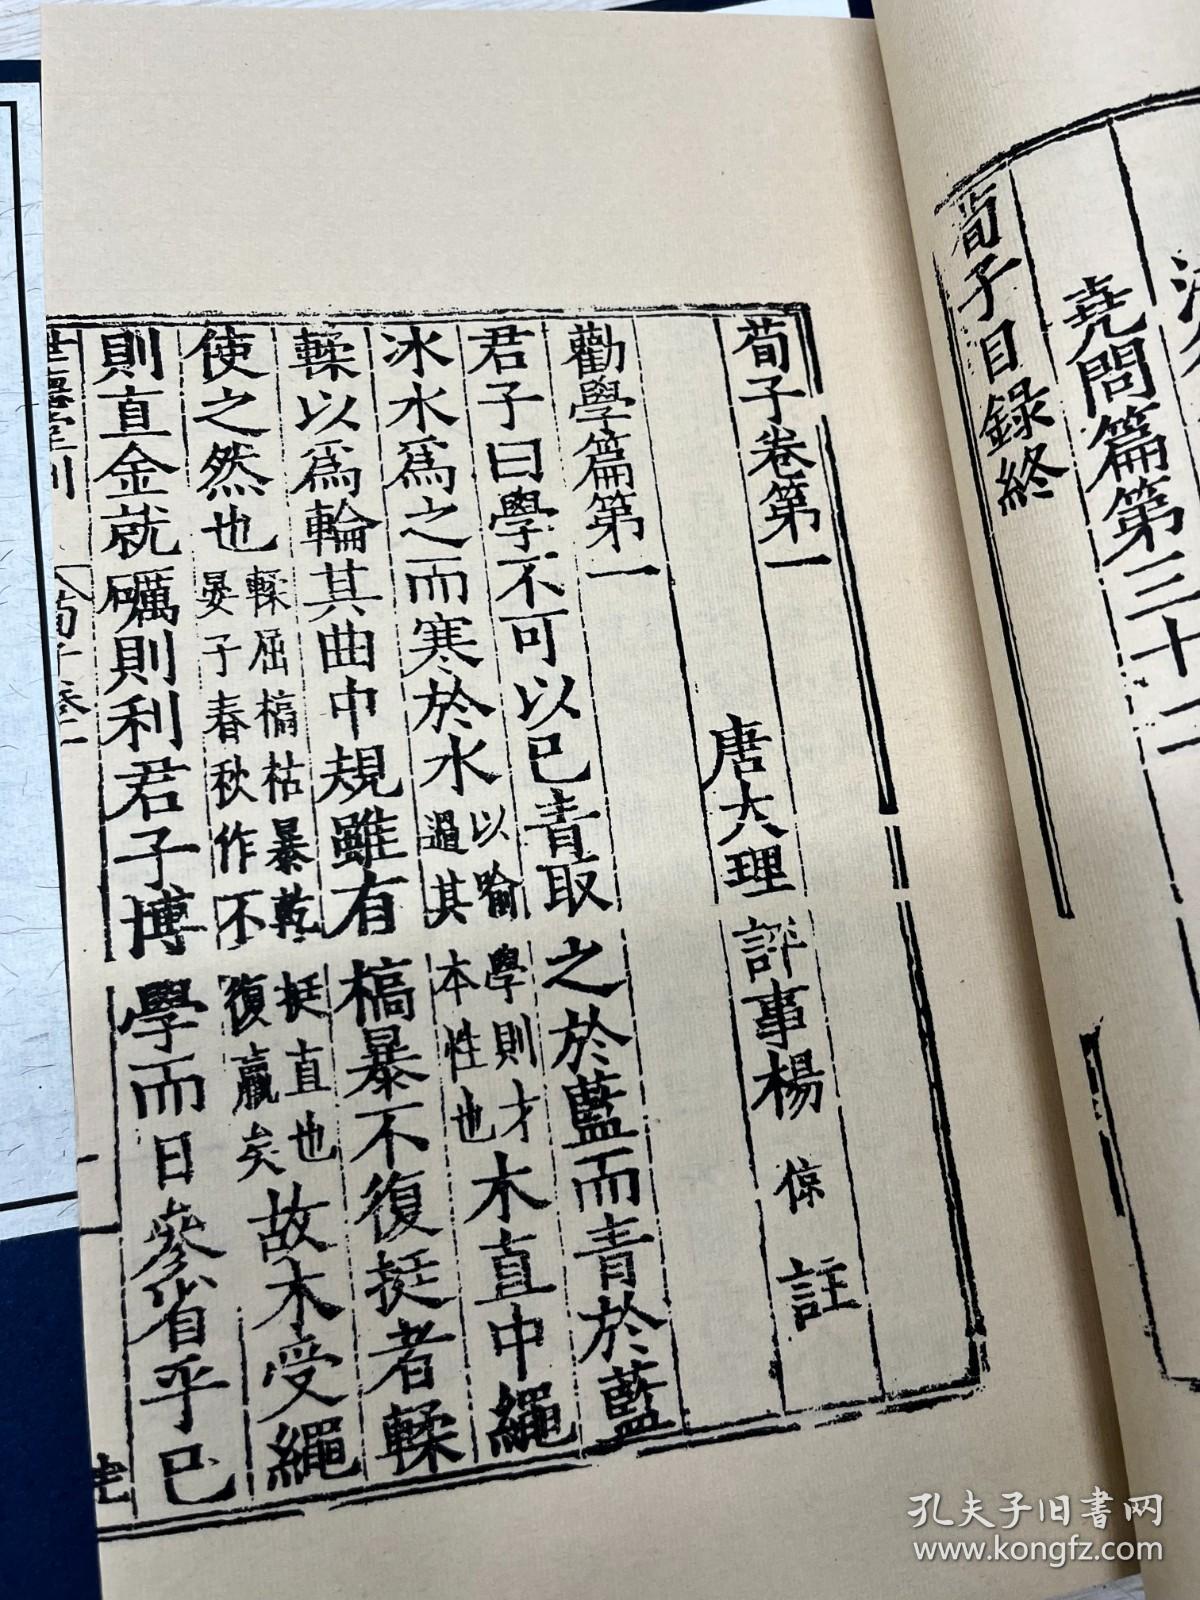 堯問篇第三十二
荀子目錄終
荀子卷第一
唐大理評事楊倞註
勸學篇第一
君子曰學不可以已青取之於藍而青於藍
冰水爲之而寒於水以喻學則才過其本性也木直中繩
輮以爲輪其曲中規雖有槁暴不復挺者輮
使之然也輮屈槁枯暴乾挺直也晏子春秋作不復羸矣故木受繩
則直金就礪則利君子博學而日參省乎已
世德堂刊
荀子卷一
孔夫子旧书网
www.kongfz.com